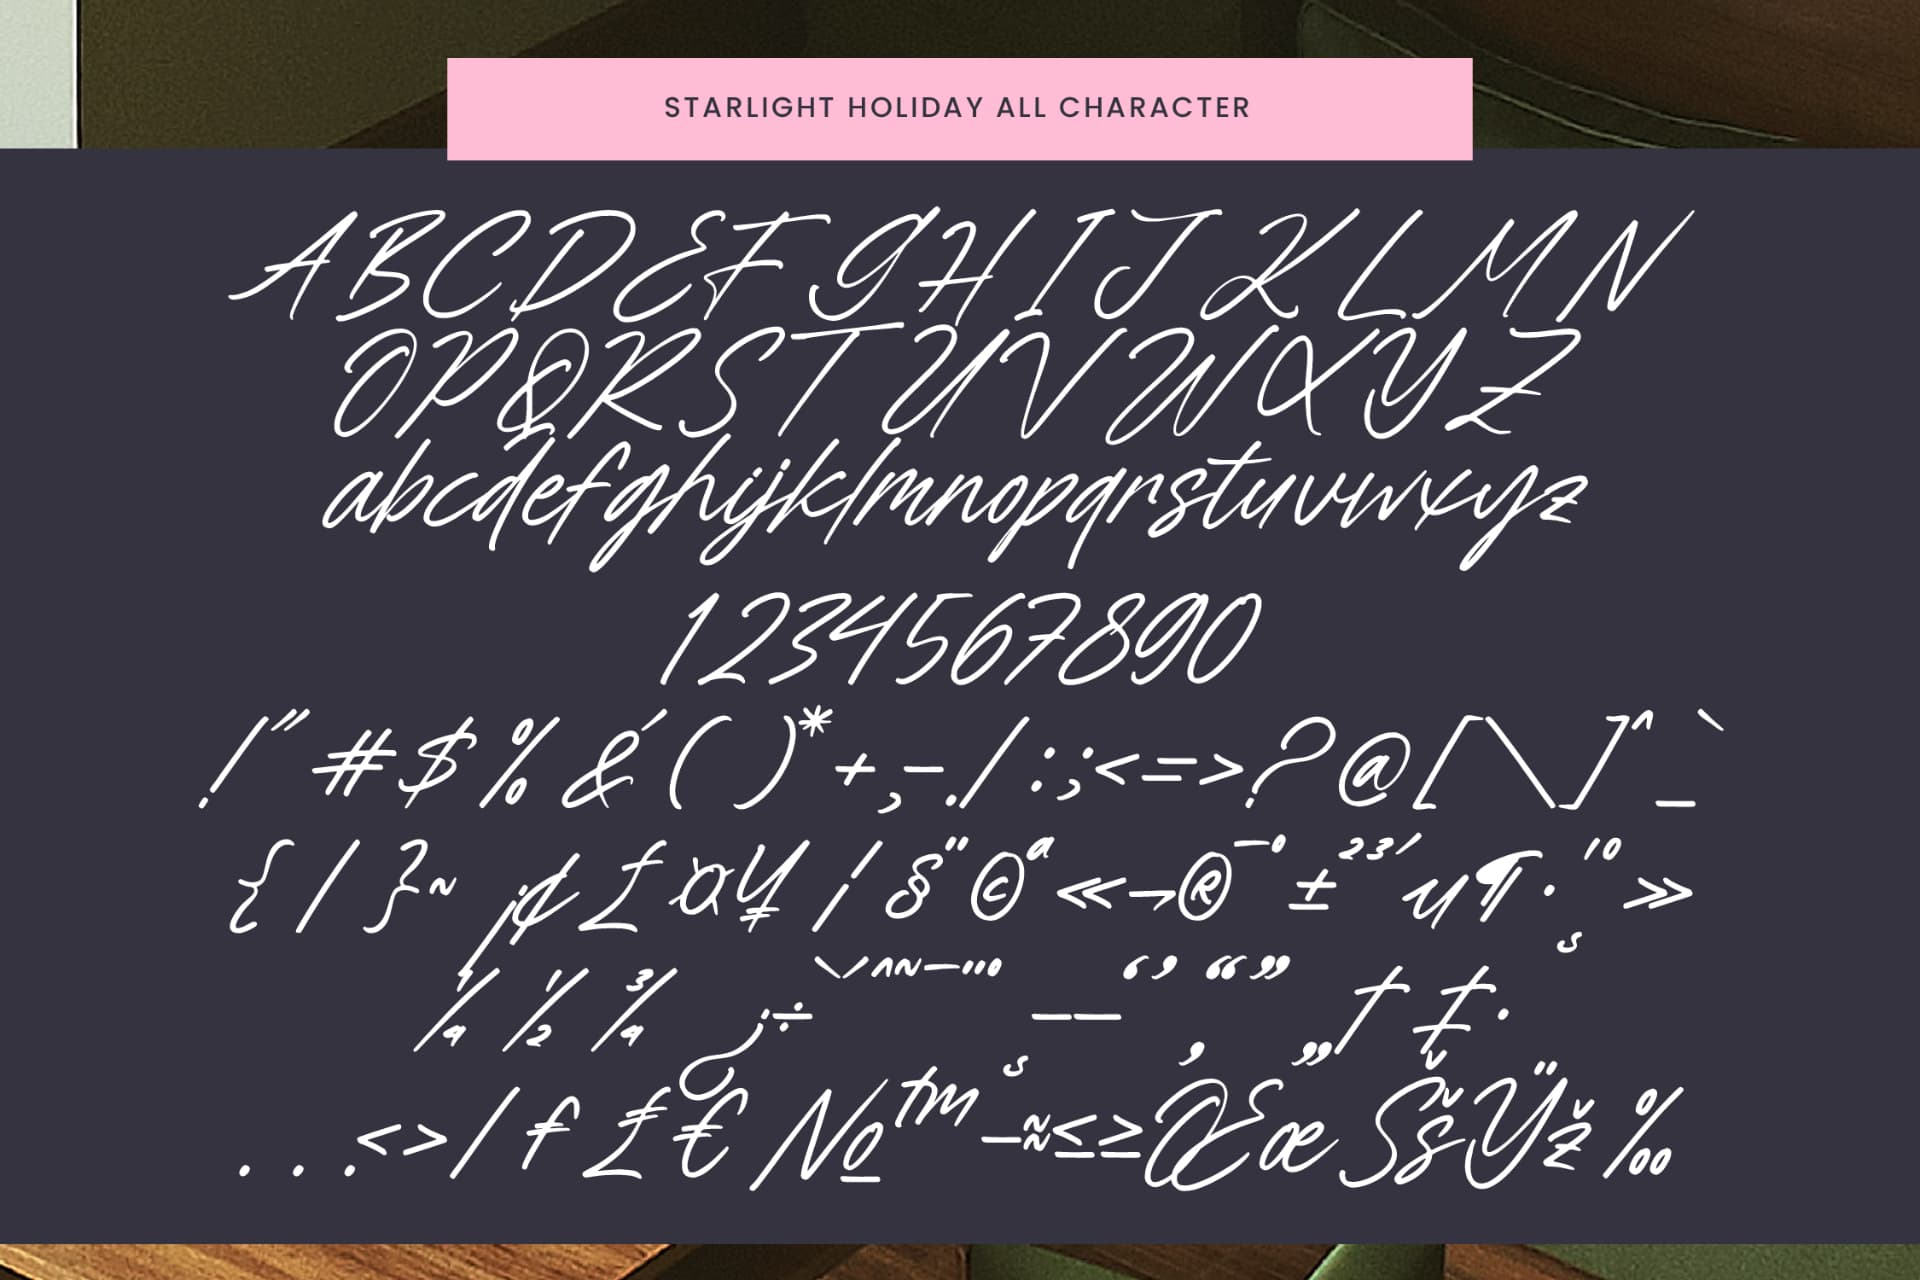 STARLIGHT HOLIDAY ALL CHARACTER
ABCDEFGHIJKLMN
OPQRSTUVWXYZ
abcdefghijklmnopqrstuvwxyz
1234567890
!"#$%&'()*+,-./:;<=>?@[\]^_`
{|}~¡¢£¤¥¦§¨©ª«¬®¯°±²³´µ¶·¸¹º»
¼½¾¿÷ˋˊˆ˜¯˙¨˚¸–—‘’‚“”„†‡•
...‹›⁄ƒ₤€№™−≈≤≥ŒœŠšŸž‰